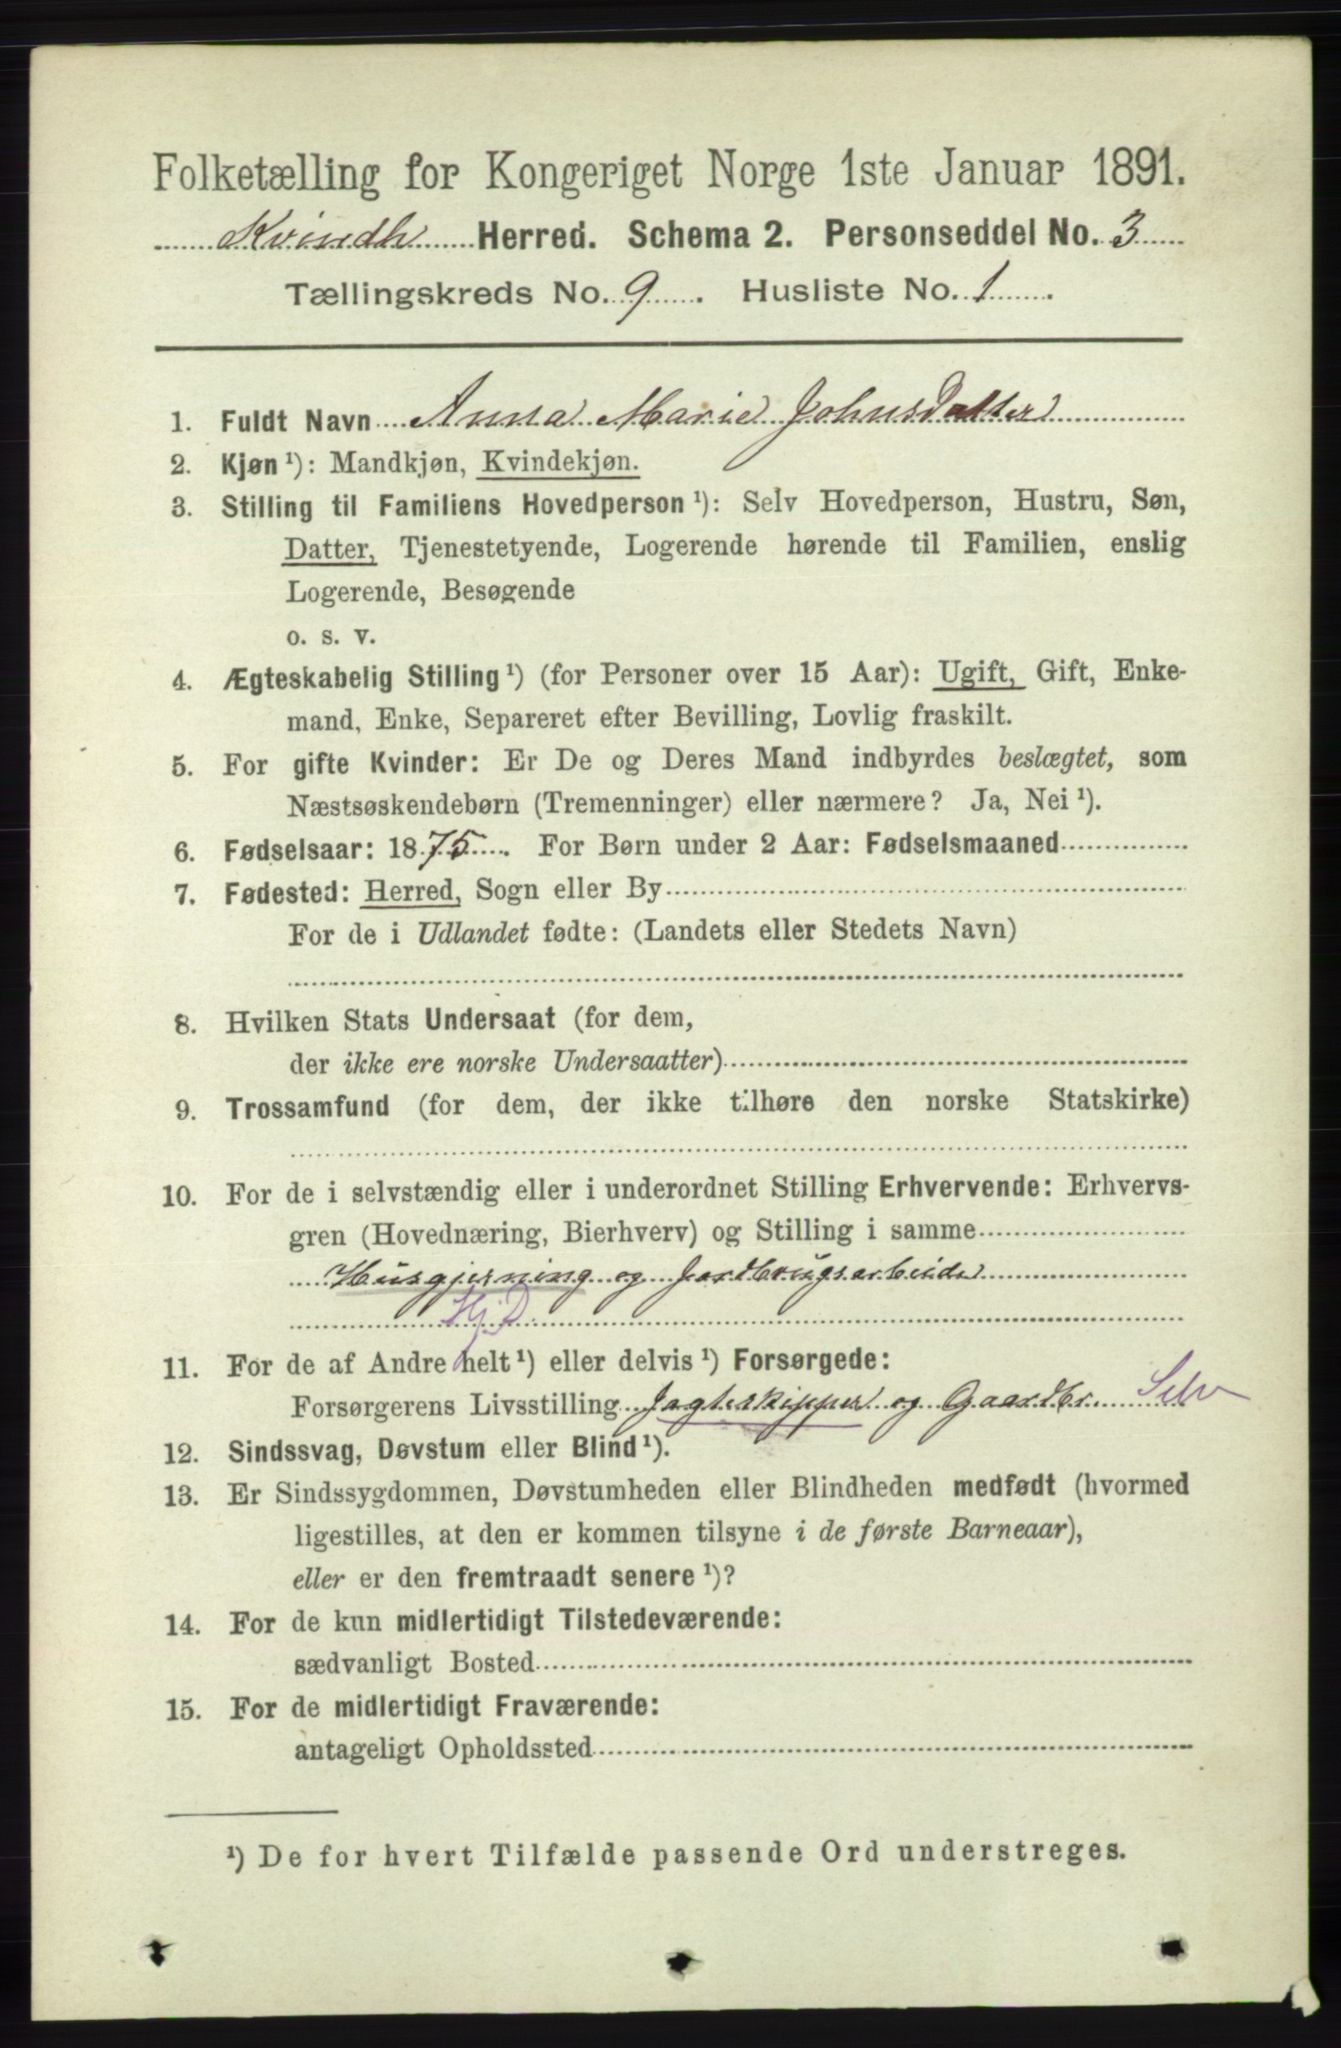 Folketælling for Kongeriget Norge 1ste Januar 1891.
Kvindh Herred. Schema 2. Personseddel No. 3
Tællingskreds No. 9. Husliste No. 1.
1. Fuldt Navn Anna Marie Johnsdatter
2. Kjøn¹): Mandkjøn, Kvindekjøn.
3. Stilling til Familiens Hovedperson¹): Selv Hovedperson, Hustru, Søn,
Datter, Tjenestetyende, Logerende hørende til Familien, enslig
Logerende, Besøgende
o. s. v.
4. Ægteskabelig Stilling¹) (for Personer over 15 Aar): Ugift, Gift, Enke-
mand, Enke, Separeret efter Bevilling, Lovlig fraskilt.
5. For gifte Kvinder: Er De og Deres Mand indbyrdes beslægtet, som
Næstsøskendebørn (Tremenninger) eller nærmere? Ja, Nei¹).
6. Fødselsaar: 1875. For Børn under 2 Aar: Fødselsmaaned
7. Fødested: Herred, Sogn eller By
For de i Udlandet fødte: (Landets eller Stedets Navn)
8. Hvilken Stats Undersaat (for dem,
der ikke ere norske Undersaatter)
9. Trossamfund (for dem, der ikke tilhøre den norske Statskirke)
10. For de i selvstændig eller i underordnet Stilling Erhvervende: Erhvervs-
gren (Hovednæring, Bierhverv) og Stilling i samme
Husgjerning og Jordbrugsarbeide
Hj.D
11. For de af Andre helt¹) eller delvis¹) Forsørgede:
Forsørgerens Livsstilling Jagteskipper og Gaardbr. Selv
12. Sindssvag, Døvstum eller Blind¹).
13. Er Sindssygdommen, Døvstumheden eller Blindheden medfødt (hvormed
ligestilles, at den er kommen tilsyne i de første Barneaar),
eller er den fremtraadt senere¹)?
14. For de kun midlertidigt Tilstedeværende:
sædvanligt Bosted
15. For de midlertidigt Fraværende:
antageligt Opholdssted
¹) De for hvert Tilfælde passende Ord understreges.